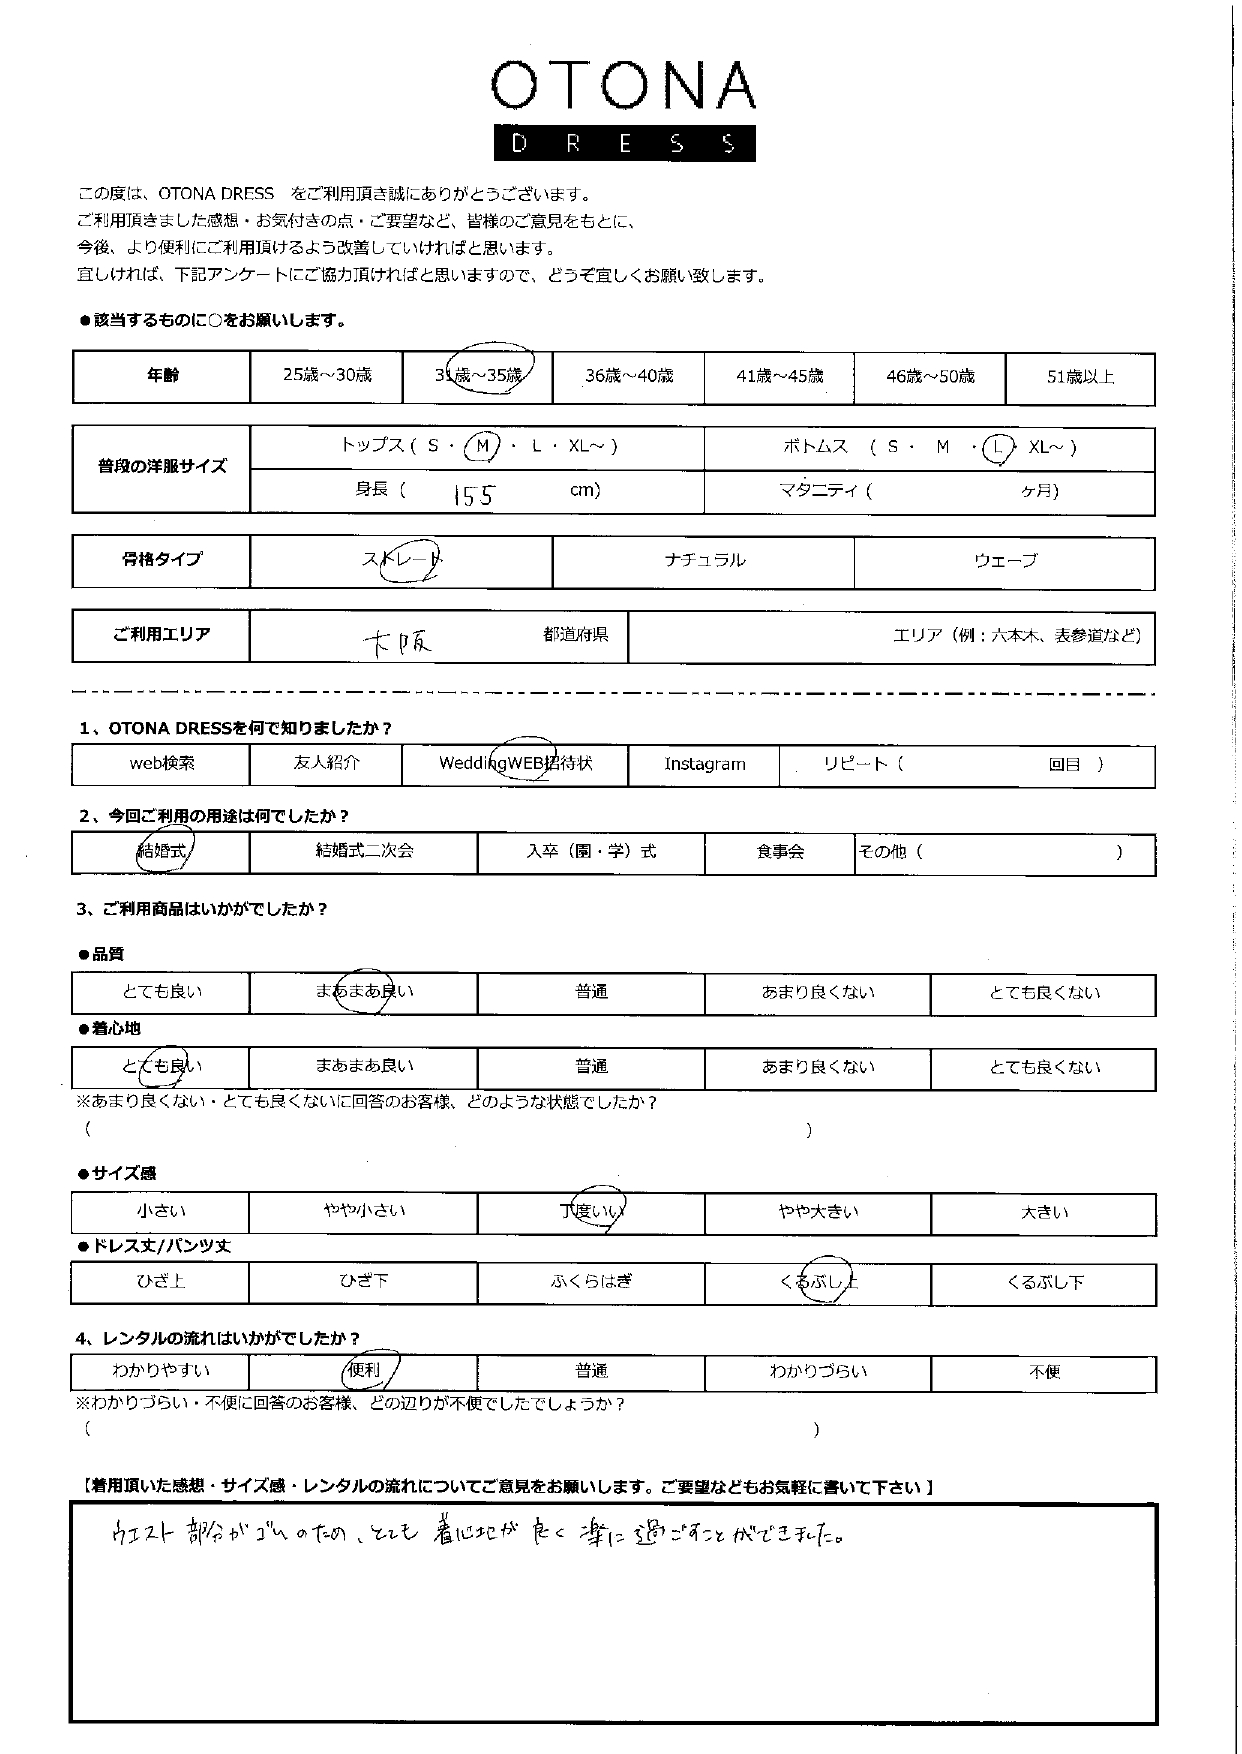 OTONA
DRESS
この度は、OTONA DRESS　をご利用頂き誠にありがとうございます。
ご利用頂きました感想・お気付きの点・ご要望など、皆様のご意見をもとに、
今後、より便利にご利用頂けるよう改善していければと思います。
宜しければ、下記アンケートにご協力頂ければと思いますので、どうぞ宜しくお願い致します。
●該当するものに○をお願いします。
年齢 25歳～30歳 31歳～35歳 36歳～40歳 41歳～45歳 46歳～50歳 51歳以上
普段の洋服サイズ
トップス ( S ・ M ・ L ・ XL～ ) ボトムス ( S ・ M ・ L ・ XL～ )
身長 ( 155 cm) マタニティ ( ヶ月)
骨格タイプ ストレート ナチュラル ウェーブ
ご利用エリア 大阪 都道府県 エリア（例：六本木、表参道など）
1、OTONA DRESSを何で知りましたか？
web検索 友人紹介 WeddingWEB招待状 Instagram リピート（ 回目 ）
2、今回ご利用の用途は何でしたか？
結婚式 結婚式二次会 入卒（園・学）式 食事会 その他（ ）
3、ご利用商品はいかがでしたか？
●品質
とても良い まあまあ良い 普通 あまり良くない とても良くない
●着心地
とても良い まあまあ良い 普通 あまり良くない とても良くない
※あまり良くない・とても良くないに回答のお客様、どのような状態でしたか？
（ ）
●サイズ感
小さい やや小さい 丁度いい やや大きい 大きい
●ドレス丈/パンツ丈
ひざ上 ひざ下 ふくらはぎ くるぶし上 くるぶし下
4、レンタルの流れはいかがでしたか？
わかりやすい 便利 普通 わかりづらい 不便
※わかりづらい・不便に回答のお客様、どの辺りが不便でしたでしょうか？
（ ）
【着用頂いた感想・サイズ感・レンタルの流れについてご意見をお願いします。ご要望などもお気軽に書いて下さい】
ウエスト部分がゴムのため、とても着心地が良く楽に過ごすことができました。